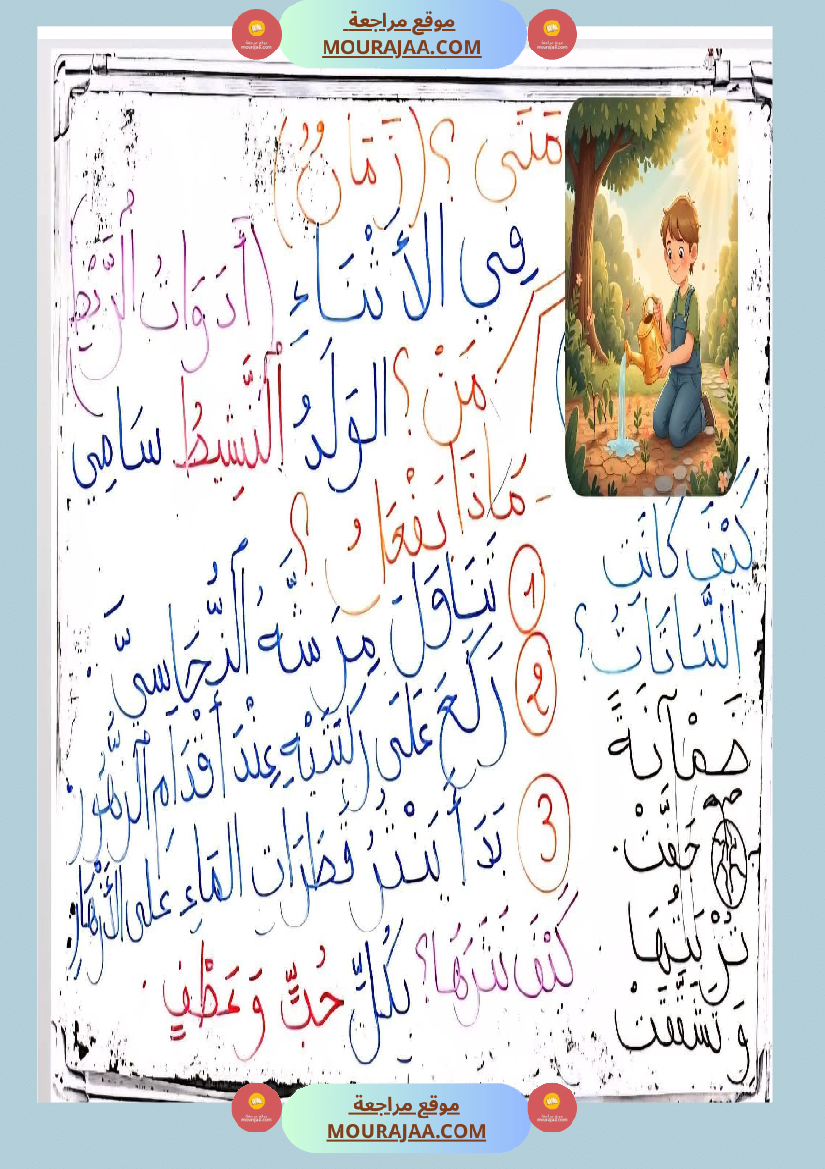 موقع مراجعة
MOURAJAA.COM
مَتَى ؟ (زَمَانٌ)
فِي الأَثْنَاءِ (أَدَوَاتُ الرَّبْطِ)
مَنْ؟ الوَلَدُ النَّشِيطُ سَامِي
- مَاذَا يَفْعَلُ ؟
1 تَنَاوَلَ مِرَشَّهُ النُّحَاسِيَّ.
2 رَكَعَ عَلَى رُكْبَتَيْهِ عِنْدَ أَقْدَامِ الزُّهُورِ
3 بَدَأَ يَنْثُرُ قَطَرَاتِ المَاءِ عَلى الأَزْهَارِ
كَيْفَ نَثَرَهَا؟ بِكُلِّ حُبٍّ وَ عَطْفٍ.
كَيْفَ كَانَتِ
النَّبَاتَاتُ ؟
ضَمْآنَةً
جَفَّتْ.
تُرْبَتُهَا
وَ تَشَقَّقَتْ
موقع مراجعة
MOURAJAA.COM